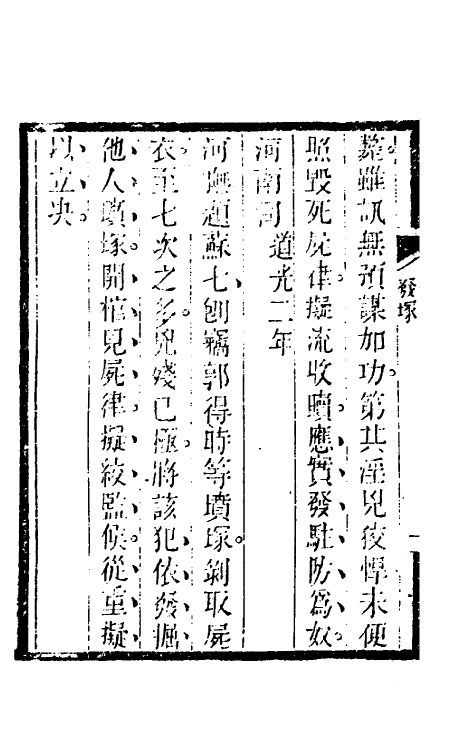 發塚
斃雖訊無預謀加功第其淫兇狡悍未便
照毀死屍律擬流收贖應實發駐防為奴
河南司 道光二年
河撫題蘇七刨竊郭得時等墳塚剝取屍
衣至七次之多兇殘已極將該犯依發掘
他人墳塚開棺見屍律擬絞監候從重擬
以立决